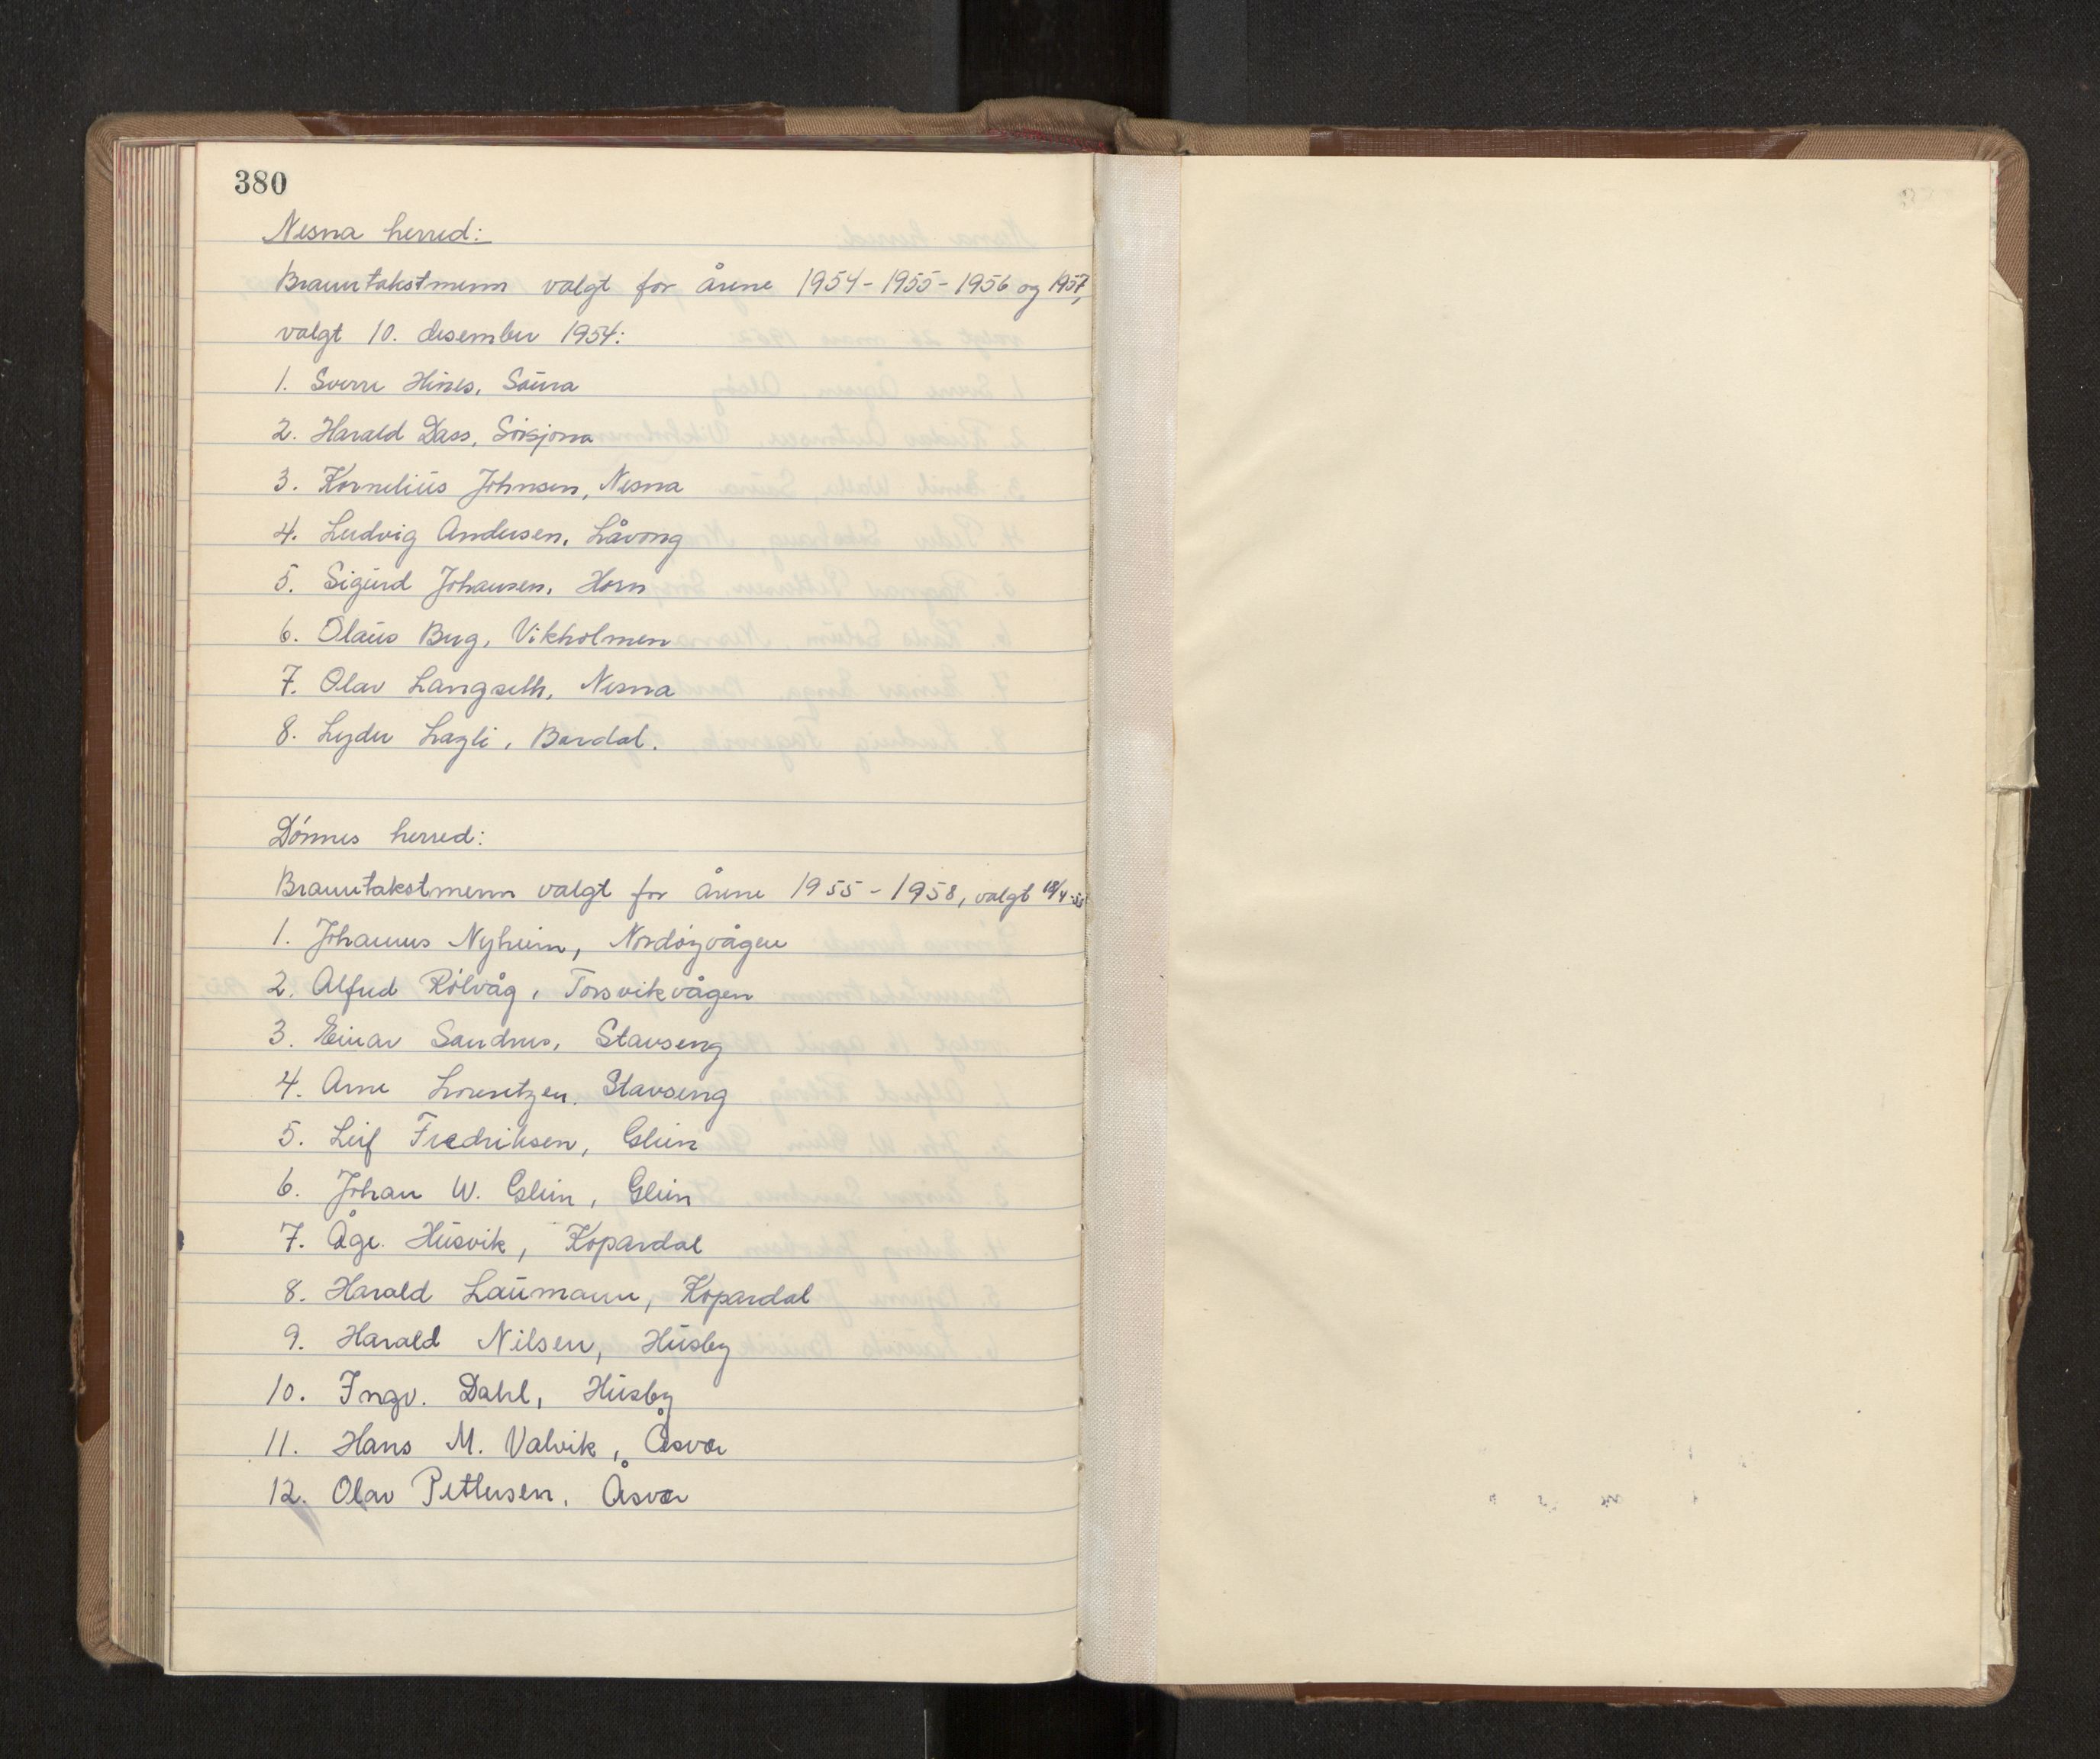 380
Nesna herred:
Branntakstmenn valgt for årene 1954-1955-1956 og 1957,
valgt 10. desember 1954:
1. Sverre Hines, Saura
2. Harald Dass, Sörsjona
3. Kornelius Johnsen, Nesna
4. Ludvig Andersen, Låvong
5. Sigurd Johansen, Horn
6. Olaus Berg, Vikholmen
7. Olav Langseth, Nesna
8. Lyder Lazli, Bardal.
Dönnes herred:
Branntakstmenn valgt for årene 1955-1958, valgt 18/4-55
1. Johannes Nyheim, Nordöyvågen
2. Alfred Rölvåg, Torsvikvågen
3. Einar Sandnes, Stavseng
4. Arne Lorentzen, Stavseng
5. Leif Fredriksen, Glein
6. Johan W. Glein, Glein
7. Åge Husvik, Kopardal
8. Harald Laumann, Kopardal
9. Harald Nilsen, Husby
10. Ingv. Dahl, Husby
11. Hans M. Valvik, Åsvær
12. Olav Pettersen, Åsvær